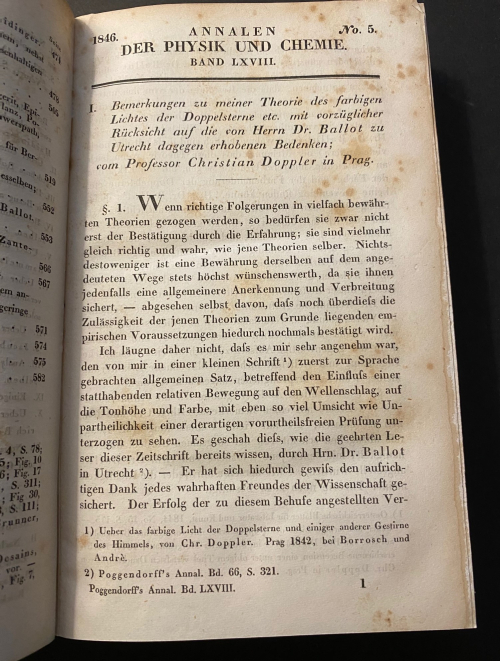 1846.
ANNALEN
No. 5.
DER PHYSIK UND CHEMIE.
BAND LXVIII.
I. Bemerkungen zu meiner Theorie des farbigen
Lichtes der Doppelsterne etc. mit vorzüglicher
Rücksicht auf die von Herrn Dr. Ballot zu
Utrecht dagegen erhobenen Bedenken;
vom Professor Christian Doppler in Prag.
§. 1. Wenn richtige Folgerungen in vielfach bewähr-
ten Theorien gezogen werden, so bedürfen sie zwar nicht
erst der Bestätigung durch die Erfahrung; sie sind vielmehr
gleich richtig und wahr, wie jene Theorien selber. Nichts-
destoweniger ist eine Bewährung derselben auf dem ange-
deuteten Wege stets höchst wünschenswerth, da sie ihnen
jedenfalls eine allgemeinere Anerkennung und Verbreitung
sichert, — abgesehen selbst davon, daſs noch überdieſs die
Zulässigkeit der jenen Theorien zum Grunde liegenden em-
pirischen Voraussetzungen hiedurch nochmals bestätigt wird.
Ich läugne daher nicht, daſs es mir sehr angenehm war,
den von mir in einer kleinen Schrift ¹) zuerst zur Sprache
gebrachten allgemeinen Satz, betreffend den Einfluſs einer
statthabenden relativen Bewegung auf den Wellenschlag, auf
die Tonhöhe und Farbe, mit eben so viel Umsicht wie Un-
partheilichkeit einer derartigen vorurtheilsfreien Prüfung un-
terzogen zu sehen. Es geschah dieſs, wie die geehrten Le-
ser dieser Zeitschrift bereits wissen, durch Hrn. Dr. Ballot
in Utrecht ²). — Er hat sich hiedurch gewiſs den aufrich-
tigen Dank jedes wahrhaften Freundes der Wissenschaft ge-
sichert. Der Erfolg der zu diesem Behufe angestellten Ver-
1) Ueber das farbige Licht der Doppelsterne und einiger anderer Gestirne
des Himmels, von Chr. Doppler. Prag 1842, bei Borrosch und
Andrè.
2) Poggendorff's Annal. Bd. 66, S. 321.
Poggendorff's Annal. Bd. LXVIII.
1
471
für Ber-
esselben;
552
Ballot.
553
Zante-
566
567
em an-
geringe
571
574
575
582
4, S. 78;
5; Fig. 10
6; Fig. 17
S. 311;
Fig 30,
S. 111;
Desains,
vor.
Fig. 7,